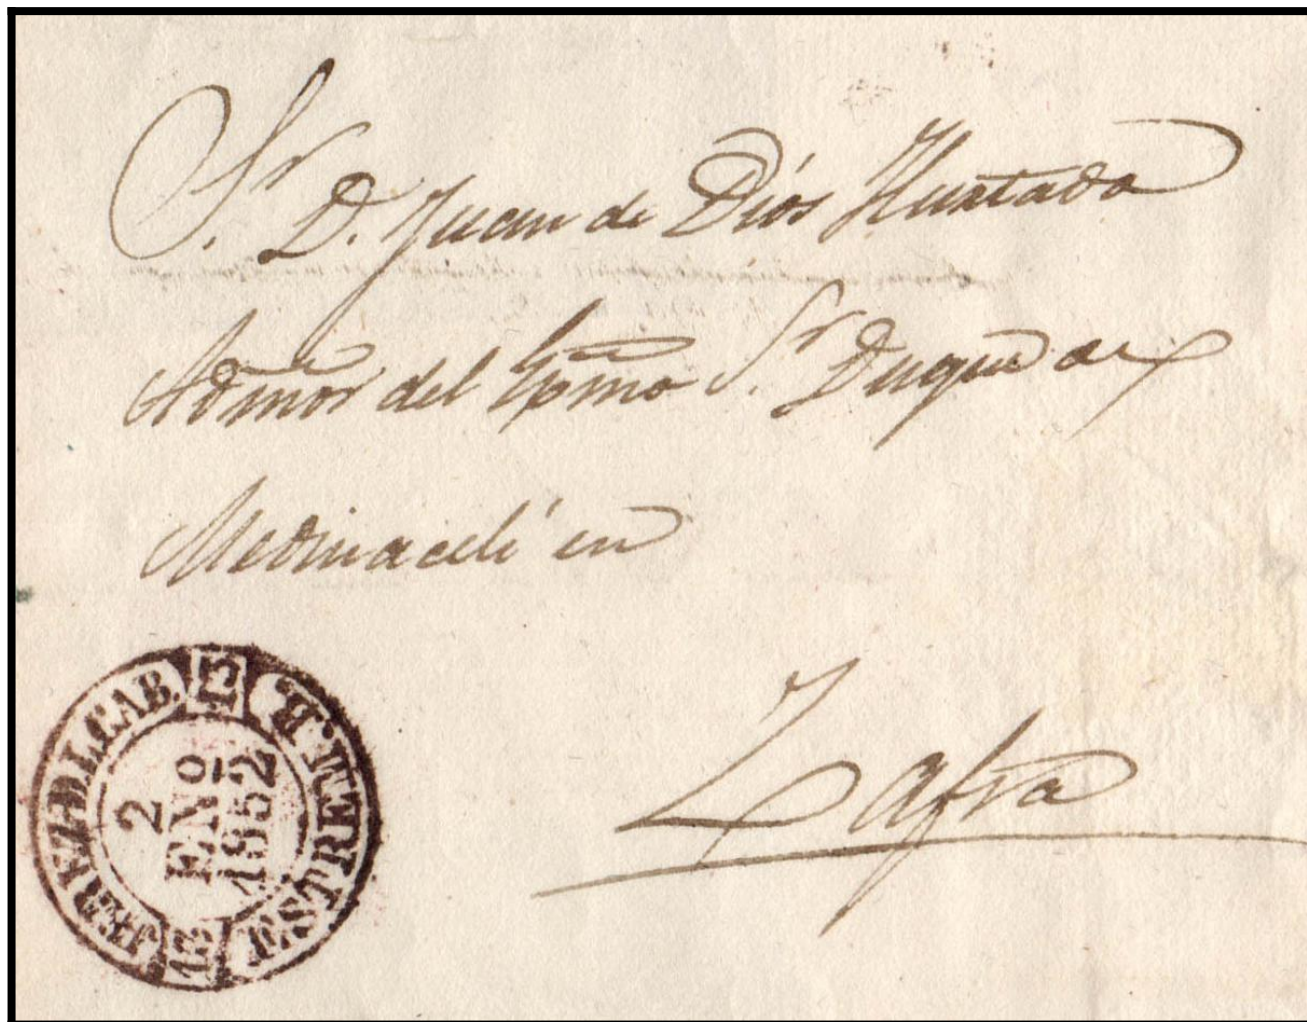 Sr. D. Juan de Dios Hurtado
Admor del Exmo Sr. Duque de
Medinaceli en
Zafra
JEREZ D L CAB.
12
2
ENO
1852
13